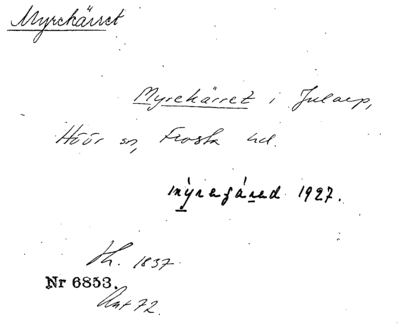 Myrekärret
Myrekärret i Julaep,
Höör sn, Frosta hd.
mýrešáred 1927.
Th. 1837.
Nr 6853.
Ant 72.